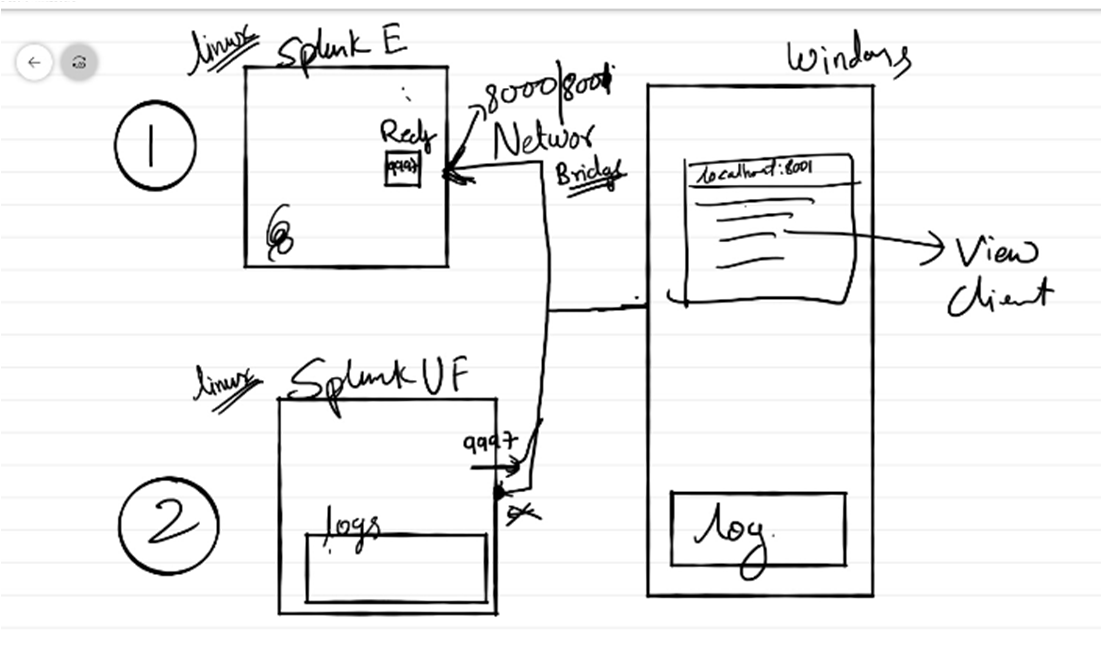 linux Splunk E
1
8000/8001
Networ
Bridge
9997
Windows
localhost:8001
View
Client
linux Splunk UF
9997
2
logs
log